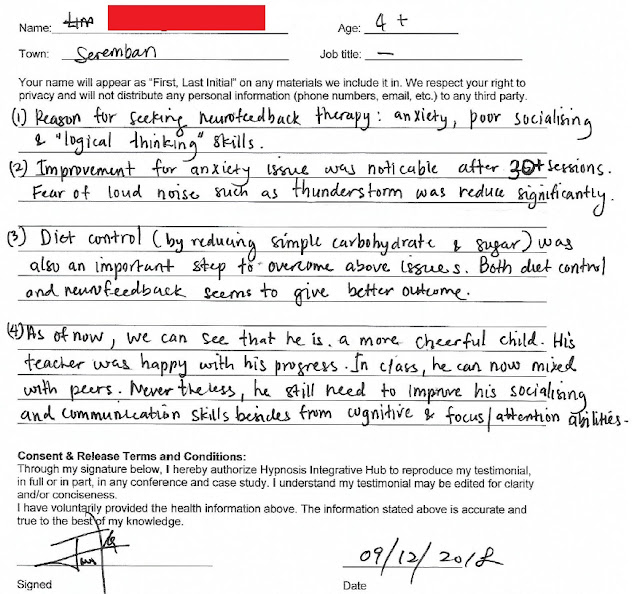 Name: Lim
Age: 4+
Town: Seremban
Job title: —
Your name will appear as "First, Last Initial" on any materials we include it in. We respect your right to
privacy and will not distribute any personal information (phone numbers, email, etc.) to any third party.
(1) Reason for seeking neurofeedback therapy: anxiety, poor socialising
& "logical thinking" skills.
(2) Improvement for anxiety issue was noticable after 30+ sessions.
Fear of loud noise such as thunderstorm was reduce significantly.
(3) Diet control (by reducing simple carbohydrate & sugar) was
also an important step to overcome above issues. Both diet control
and neurofeedback seems to give better outcome.
(4) As of now, we can see that he is a more cheerful child. His
teacher was happy with his progress. In class, he can now mixed
with peers. Nevertheless, he still need to improve his socialising
and communication skills besides from cognitive & focus/attention abilities.
Consent & Release Terms and Conditions:
Through my signature below, I hereby authorize Hypnosis Integrative Hub to reproduce my testimonial,
in full or in part, in any conference and case study. I understand my testimonial may be edited for clarity
and/or conciseness.
I have voluntarily provided the health information above. The information stated above is accurate and
true to the best of my knowledge.
09/12/2018
Signed
Date